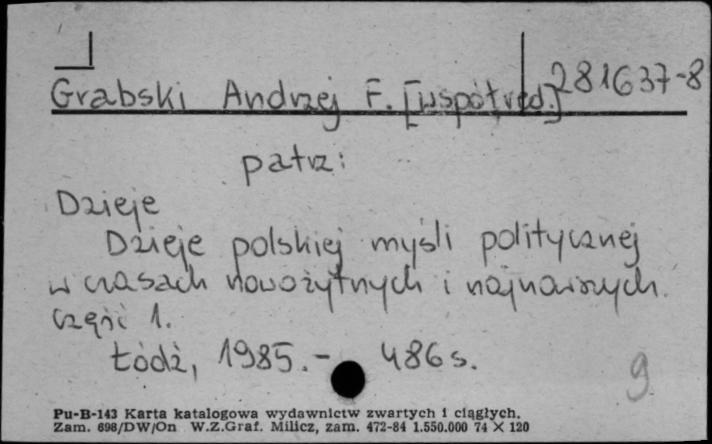 281637-8
Grabski Andrzej F. [współred.]
patrz:
Dzieje
Dzieje polskiej myśli politycznej
w czasach nowożytnych i najnowszych.
Część 1.
Łódź, 1985.- 486 s.
9
Pu-B-143 Karta katalogowa wydawnictw zwartych i ciągłych.
Zam. 698/DW/On W.Z.Graf. Milicz, zam. 472-84 1.550.000 74 X 120